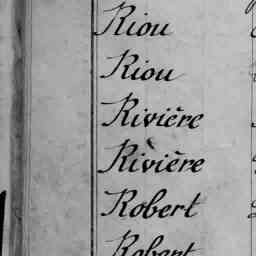 Riou
Riou
Rivière
Rivière
Robert
Robert